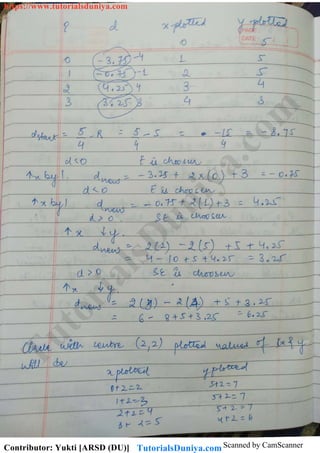 https://www.tutorialsduniya.com
PAGE
DATE
P d x plotted y plotted
0 5
0 -3.75 -4 1 5
1 -0.75 -1 2 5
2 4.25 4 3 4
3 3.25 3 4 3
dstart = 5/4 - R = 5/4 - 5 = -15/4 = -3.75
d<0 E is choosen
↑x by 1. dnew = -3.75 + 2x(0) + 3 = -0.75
d<0 E is choosen
↑x by 1 dnew = -0.75 + 2(1) + 3 = 4.25
d>0. SE is choosen
↑x ↓y.
dnew = 2(2) - 2(5) + 5 + 4.25
4 - 10 + 5 + 4.25 = 3.25
d>0 SE is choosen
↑x ↓y
dnew = 2(3) - 2(4) + 5 + 3.25
= 6 - 8 + 5 + 3.25 = 6.25
Circle with centre (2,2) plotted values of x & y
will be
x plotted y plotted
0+2=2 5+2=7
1+2=3 5+2=7
2+2=4 5+2=7
3+2=5 4+2=6
TutorialsDuniya.com
Contributor: Yukti [ARSD (DU)] TutorialsDuniya.com Scanned by CamScanner